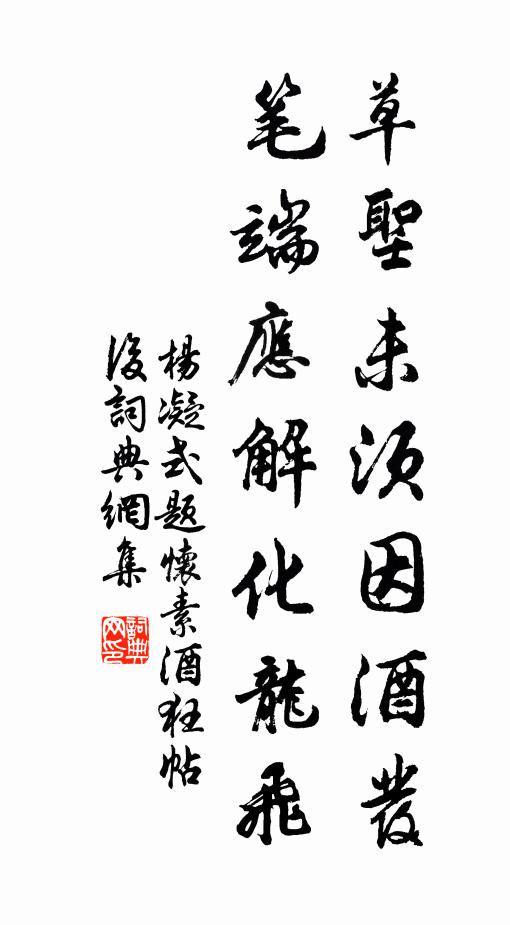 草聖未須因酒發
笔端應解化龍飛
楊凝式题懷素酒狂帖
後詞典網集
詞典网印